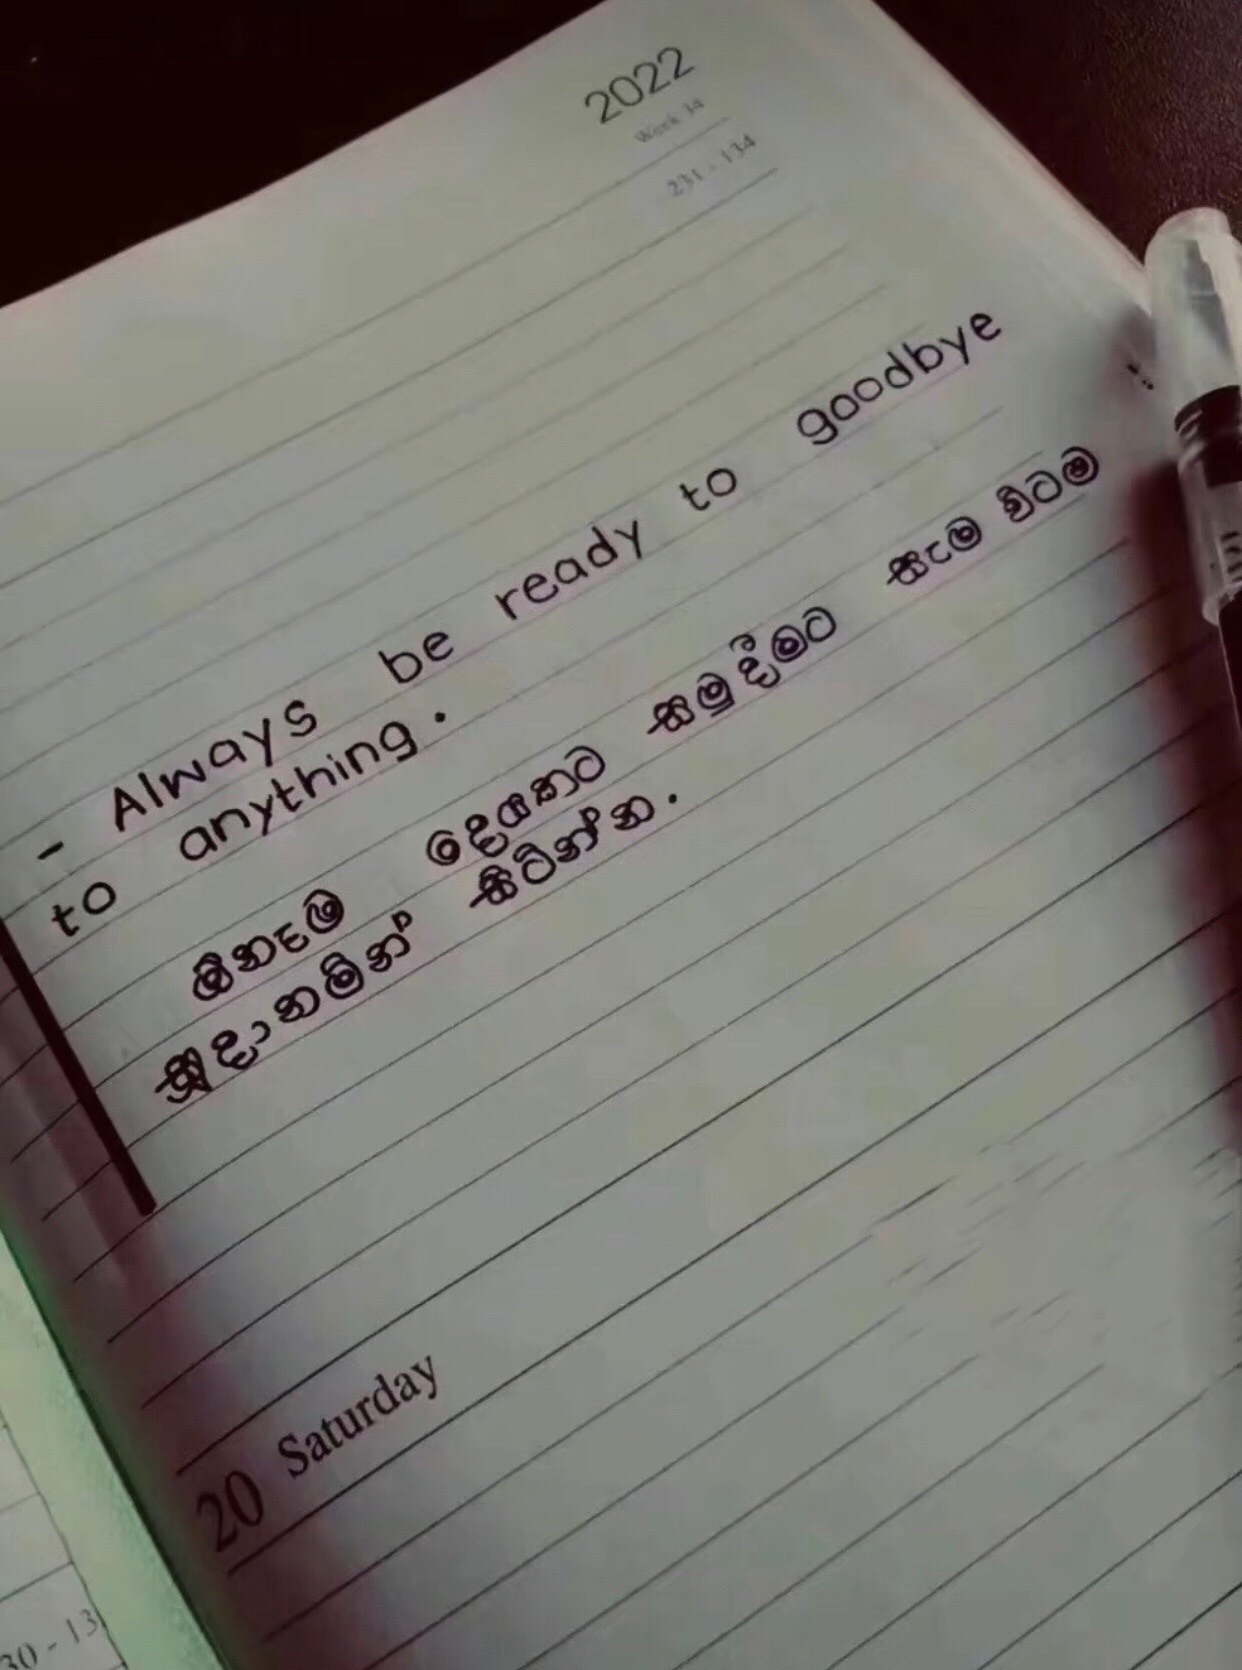 2022
Week 34
231 - 134
- Always be ready to goodbye
to anything.
ඕනෑම දෙයකට සමුදීමට සෑම විටම
සූදානමින් සිටින්න.
20 Saturday
30 - 13